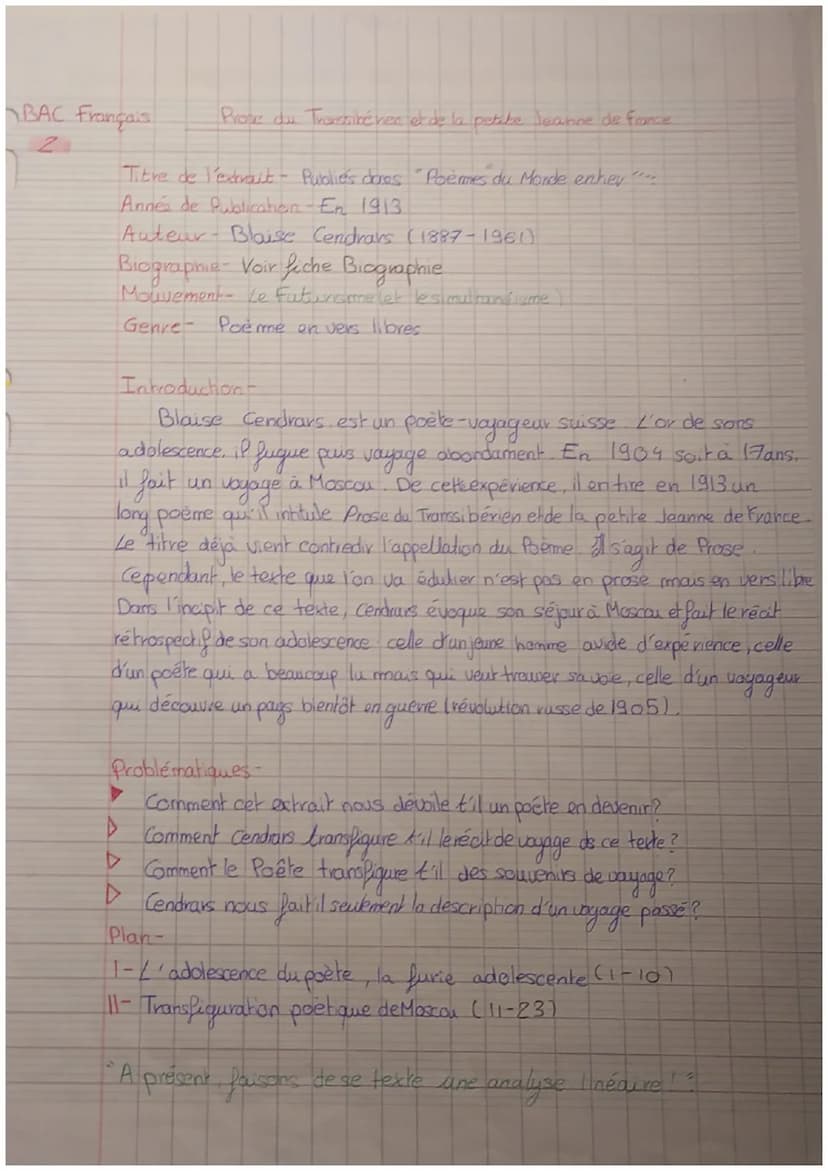 BAC Français Prose du Transsibérien et de la petite Jeanne de france
2
Titre de l'extrait - Publiés dans "Poèmes du Monde entier"
Année de Publication - En 1913
Auteur - Blaise Cendrars (1887-1961)
Biographie - Voir fiche Biographie
Mouvement - Le Futurisme (et le simultanéisme)
Genre - Poème en vers libres
Introduction -
Blaise Cendrars est un poète-voyageur suisse. L'or de sons
adolescence, il fugue puis voyage abondament. En 1904 soit à 17ans,
il fait un voyage à Moscou. De cette expérience, il en tire en 1913 un
long poème qu'il intitule Prose du Transsibérien et de la petite Jeanne de France.
Le titre déjà vient contredir l'appellation du Poème. Il s'agit de Prose.
Cependant, le texte que l'on va édulier n'est pas en prose mais en vers libre
Dans l'incipit de ce texte, Cendrars évoque son séjour à Moscou et fait le récit
rétrospectif de son adolescence celle d'un jeune homme avide d'expérience, celle
d'un poête qui a beaucoup lu mais qui veut trouver sa voie, celle d'un voyageur
qui découvre un pays bientôt en guerre (révolution russe de 1905).
Problématiques -
Comment cet extrait nous dévoile t'il un poéte en devenir?
Comment Cendrars transfigure t'il le récit de voyage ds ce texte?
Comment le Poête transfigure t'il des souvenirs de voyage?
Cendrars nous fait il seulement la description d'un voyage passé?
Plan -
I - L'adolescence du poète, la furie adolescente (1-10)
II - Transfiguration poétique de Moscou (11-23)
"A présent, faisons de se texte une analyse linéaire!"